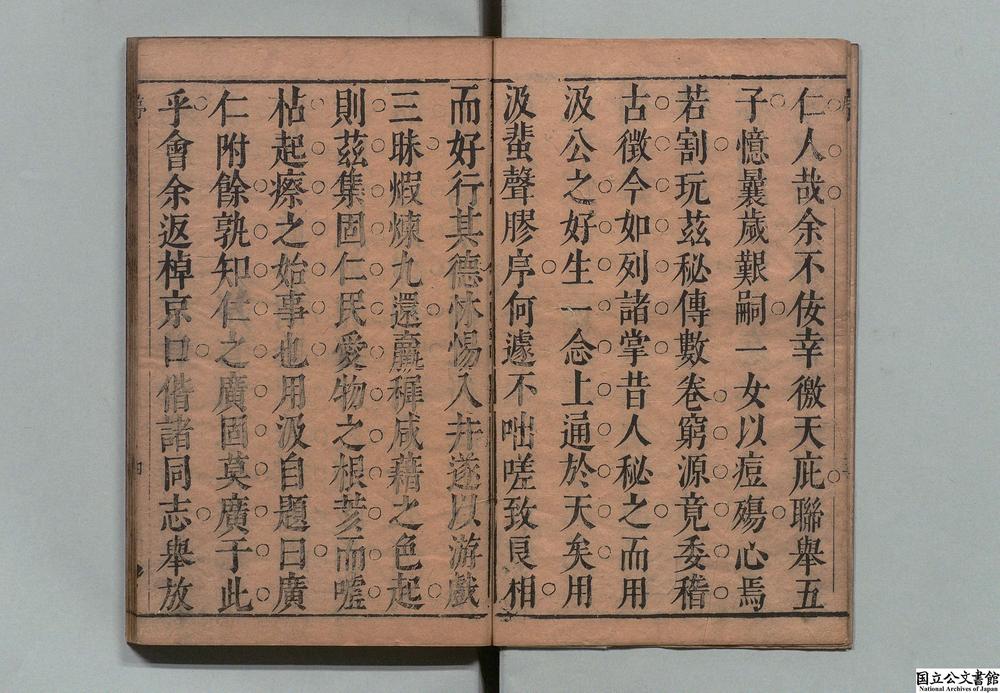 仁人哉余不佞幸徼天庇聯舉五
子憶曩歲艱嗣一女以痘殤心焉
若割玩茲秘傳數卷窮源竟委稽
古徵今如列諸掌昔人秘之而用
汲公之好生一念上通於天矣用
汲蜚聲膠序何遽不咄嗟致良相
而好行其德怵惕入井遂以游戲
三昧煆煉九還羸穉咸藉之色起
則茲集固仁民愛物之根荄而噓
枯起瘵之始事也用汲自題曰廣
仁附餘孰知仁之廣固莫廣于此
乎會余返棹京口偕諸同志舉放
国立公文書館
National Archives of Japan